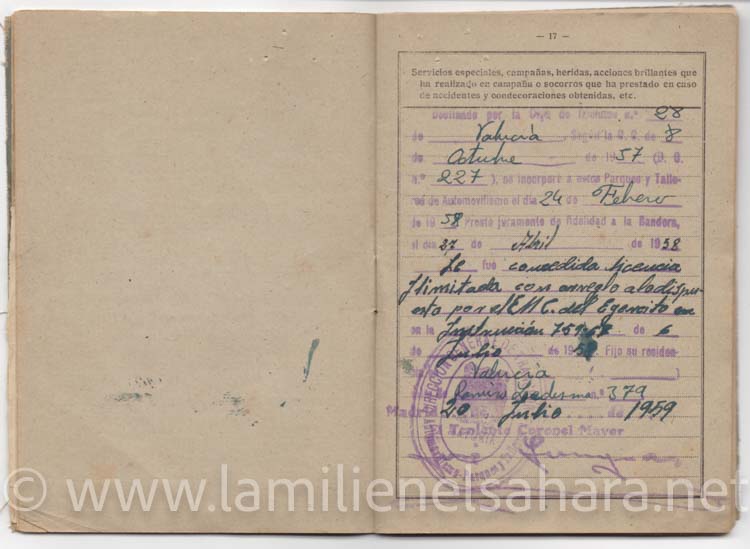 — 17 —
Servicios especiales, campañas, heridas, acciones brillantes que
ha realizado en campaña o socorros que ha prestado en caso
de accidentes y condecoraciones obtenidas, etc.
Destinado por la Caja de Reclutas n.º 28
de Valencia, Según la O. C. de 8
de Octubre de 1957 (D. O.
n.º 227), se incorporó a estos Parques y Talle-
res de Automovilismo el día 24 de Febrero
de 1958 Prestó juramento de fidelidad a la Bandera,
el día 27 de Abril de 1958
Le fue concedida licencia
Ilimitada con arreglo a lo dispu-
esto por el E.M.C. del Egercito en
en la Instrucción 159- de 6
de Julio de 195 Fijo su residen-
Valencia
Ramiro Ledesma n.º 379
Madrid 20 de Julio de 1959
El Teniente Coronel Mayor
DIRECCION GENERAL DE
© www.lamilienelsahara.net